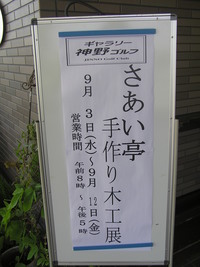 ギャラリー
神野ゴルフ
さあい亭
手作り木工展
9月3日(水)～9月 日(金)
営業時間 午前8時～午後5時